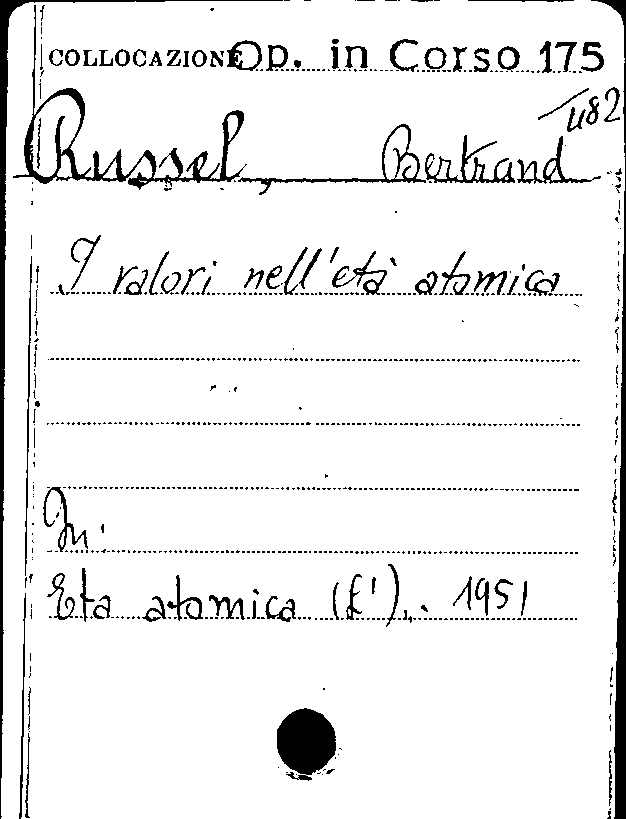 COLLOCAZIONE Op. in Corso 175
482
Russel, Bertrand
I valori nell'età atomica
In:
Eta atomica (L'),. 1951